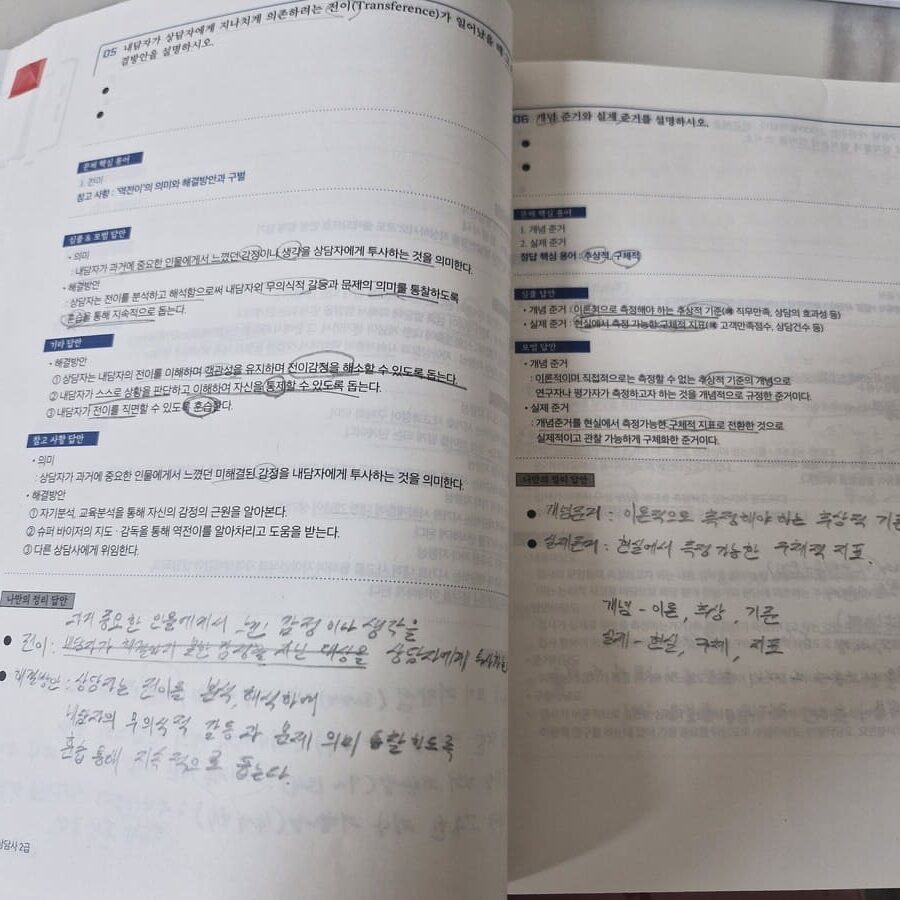 05 내담자가 상담자에게 지나치게 의존하려는 전이(Transference)가 일어났을 때
결방안을 설명하시오.
문제 핵심 용어
1. 전이
참고 사항 : '역전이'의 의미와 해결방안과 구별
심플 & 모범 답안
• 의미
: 내담자가 과거에 중요한 인물에게서 느꼈던 감정이나 생각을 상담자에게 투사하는 것을 의미한다.
• 해결방안
: 상담자는 전이를 분석하고 해석함으로써 내담자의 무의식적 갈등과 문제의 의미를 통찰하도록
훈습을 통해 지속적으로 돕는다.
기타 답안
• 해결방안
① 상담자는 내담자의 전이를 이해하며 객관성을 유지하며 전이감정을 해소할 수 있도록 돕는다.
② 내담자가 스스로 상황을 판단하고 이해하며 자신을 통제할 수 있도록 돕는다.
③ 내담자가 전이를 직면할 수 있도록 훈습한다.
참고 사항 답안
• 의미
: 상담자가 과거에 중요한 인물에게서 느꼈던 미해결된 감정을 내담자에게 투사하는 것을 의미한다.
• 해결방안
① 자기분석, 교육분석을 통해 자신의 감정의 근원을 알아본다.
② 슈퍼 바이저의 지도 · 감독을 통해 역전이를 알아차리고 도움을 받는다.
③ 다른 상담사에게 위임한다.
나만의 정리 답안
중요한 인물에게서 느낀 감정이나 생각을
• 전이 : 대상을 상담자에게
• 해결방안 : 상담자는 전이를 분석, 해석하여
내담자의 무의식적 갈등과 문제 의미 통찰하도록
훈습 통해 지속적으로 돕는다.
상담사 2급
06 개념 준거와 실제 준거를 설명하시오.
문제 핵심 용어
1. 개념 준거
2. 실제 준거
정답 핵심 용어 : 추상적, 구체적
심플 답안
• 개념 준거 : 이론적으로 측정해야 하는 추상적 기준(예 직무만족, 상담의 효과성 등)
• 실제 준거 : 현실에서 측정 가능한 구체적 지표(예 고객만족점수, 상담건수 등)
모범 답안
• 개념 준거
: 이론적이며 직접적으로는 측정할 수 없는 추상적 기준의 개념으로
연구자나 평가자가 측정하고자 하는 것을 개념적으로 규정한 준거이다.
• 실제 준거
: 개념준거를 현실에서 측정가능한 구체적 지표로 전환한 것으로
실제적이고 관찰 가능하게 구체화한 준거이다.
나만의 정리 답안
• 개념준거 : 이론적으로 측정해야 하는 추상적 기준
• 실제준거 : 현실에서 측정 가능한 구체적 지표.
개념 - 이론, 추상, 기준
실제 - 현실, 구체, 지표